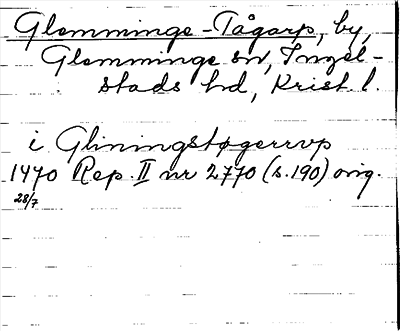 Glemminge-Tågarp, by,
Glemminge sn, Ingel-
stads hd, Krist. l.
i Gliningstøgerrvp
1470 Rep. II nr 2770 (s. 190) orig.
28/7